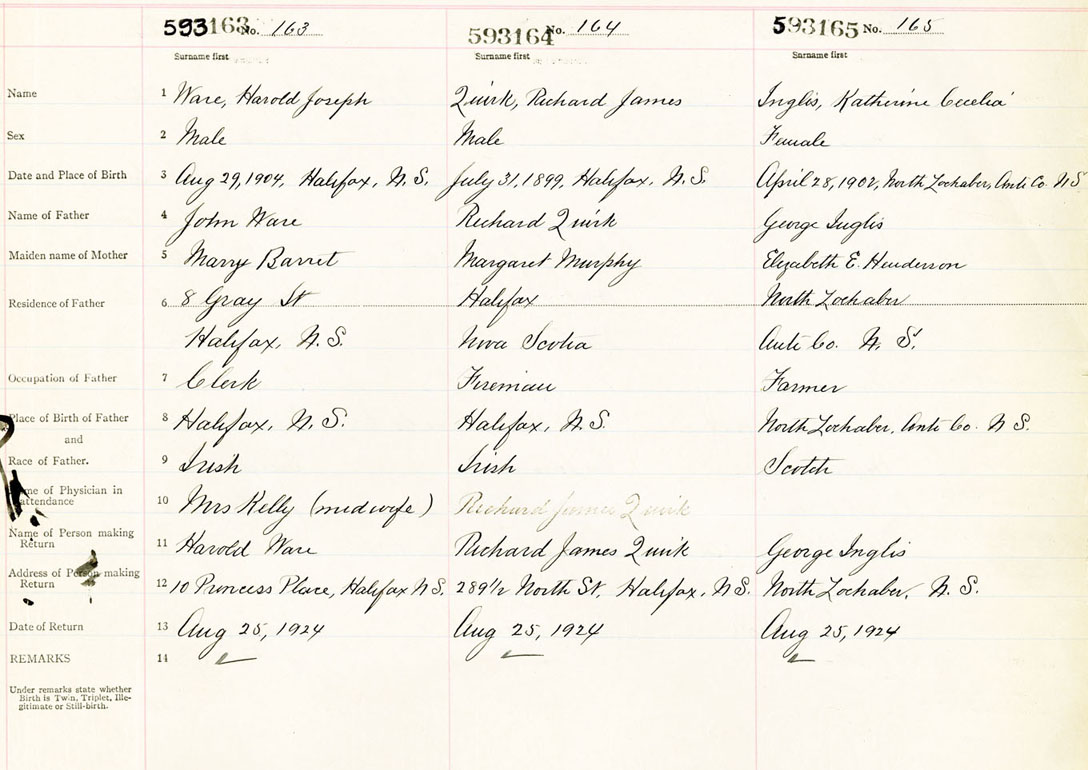 593163 No. 163 593164 No. 164 593165 No. 165
Surname first Surname first Surname first
Name 1 Ware, Harold Joseph Quirk, Richard James Inglis, Katherine Cecelia
Sex 2 Male Male Female
Date and Place of Birth 3 Aug 29, 1904, Halifax, N.S. July 31, 1899, Halifax, N.S. April 28, 1902, North Lochaber, Anti Co. N S
Name of Father 4 John Ware Richard Quirk George Inglis
Maiden name of Mother 5 Marry Barret Margaret Murphy Elizabeth E. Henderson
Residence of Father 6 8 Gray St Halifax North Lochaber
Halifax, N.S. Nova Scotia Anti Co. N. S.
Occupation of Father 7 Clerk Fireman Farmer
Place of Birth of Father 8 Halifax, N.S. Halifax, N.S. North Lochaber, Anti Co. N S.
and
Race of Father. 9 Irish Irish Scotch
Name of Physician in
attendance 10 Mrs Kelly (midwife) Richard James Quirk
Name of Person making
Return 11 Harold Ware Richard James Quirk George Inglis
Address of Person making
Return 12 10 Princess Place, Halifax N S. 289 1/2 North St, Halifax, N S. North Lochaber, N. S.
Date of Return 13 Aug 25, 1924 Aug 25, 1924 Aug 25, 1924
REMARKS 14
Under remarks state whether
Birth is Twin, Triplet, Ille-
gitimate or Still-birth.